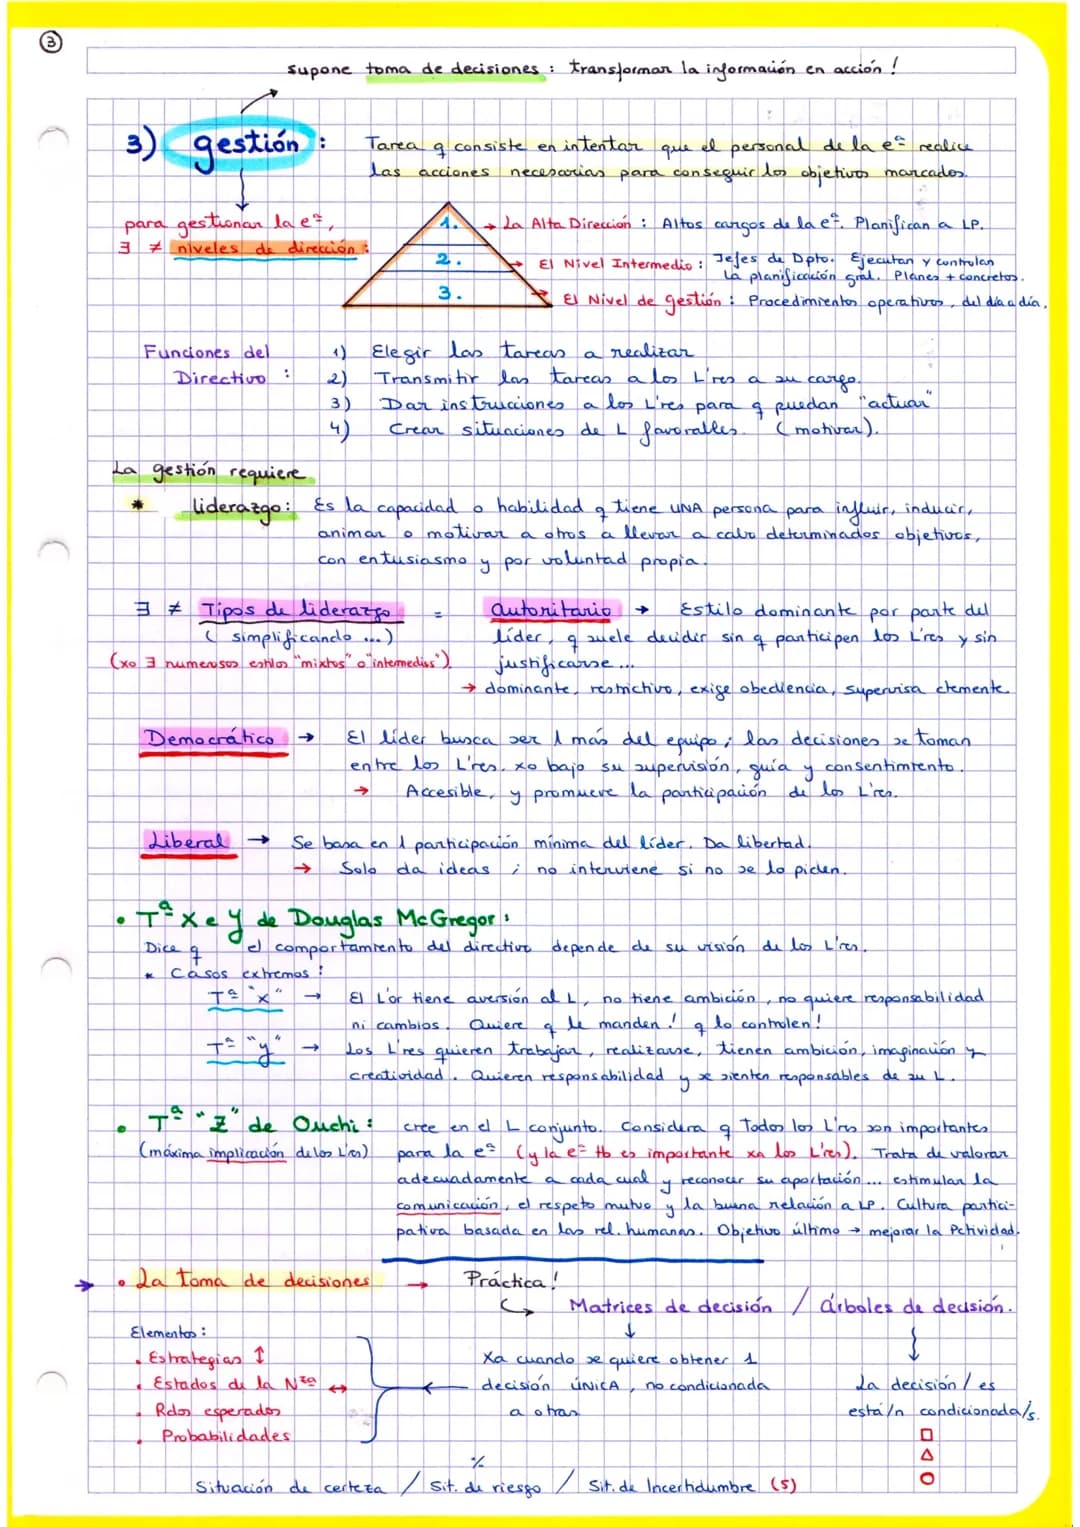 3
supone toma de decisiones : transformar la información en acción !
3) gestión : Tarea q consiste en intentar que el personal de la eª realice
las acciones necesarias para conseguir los objetivos marcados.
para gestionar la eª,
∃ ≠ niveles de dirección :
1. → La Alta Dirección : Altos cargos de la eª. Planifican a LP.
2. → El Nivel Intermedio : Jefes de Dpto. Ejecutan y controlan
la planificación gral. Planes + concretos.
3. → El Nivel de gestión : Procedimientos operativos, del día a día.
Funciones del
Directivo :
1) Elegir las tareas a realizar
2) Transmitir las tareas a los L'res a su cargo.
3) Dar instrucciones a los L'res para q puedan "actuar"
4) Crear situaciones de L favorables. (motivar).
La gestión requiere
* liderazgo : Es la capacidad o habilidad q tiene UNA persona para influir, inducir,
animar o motivar a otros a llevar a cabo determinados objetivos,
con entusiasmo y por voluntad propia.
∃ ≠ Tipos de liderazgo =
(simplificando ...)
(xo ∃ numerosos estilos "mixtos" o "intermedios").
autoritario → Estilo dominante por parte del
líder, q suele decidir sin q participen los L'res y sin
justificarse ...
→ dominante, restrictivo, exige obediencia, supervisa ctemente.
Democrático → El líder busca ser 1 más del equipo ; las decisiones se toman
entre los L'res. xo bajo su supervisión, guía y consentimiento.
→ Accesible, y promueve la participación de los L'res.
Liberal → Se basa en 1 participación mínima del líder. Da libertad.
→ Solo da ideas ; no interviene si no se lo piden.
• Tª X e Y de Douglas McGregor :
Dice q el comportamiento del directivo depende de su visión de los L'res.
* Casos extremos :
Tª "x" → El L'or tiene aversión al L, no tiene ambición, no quiere responsabilidad
ni cambios. Quiere q le manden ! q lo controlen !
Tª "y" → Los L'res quieren trabajar, realizarse, tienen ambición, imaginación y
creatividad. Quieren responsabilidad y se sienten responsables de su L.
• Tª "Z" de Ouchi : cree en el L conjunto. Considera q Todos los L'res son importantes
(máxima implicación de los L'res) para la eª (y la eª tb es importante xa los L'res). Trata de valorar
adecuadamente a cada cual y reconocer su aportación ... estimular la
comunicación, el respeto mutuo y la buena relación a LP. Cultura partici-
pativa basada en las rel. humanas. Objetivo último → mejorar la Pctividad.
→ • La toma de decisiones → Práctica !
Matrices de decisión / árboles de decisión.
Elementos :
• Estrategias ↕
• Estados de la Nza ↔
• Rdos esperados
• Probabilidades
Xa cuando se quiere obtener 1
decisión ÚNICA, no condicionada
a otras
La decisión / es
está/n condicionada/s.
%
Situación de certeza / Sit. de riesgo / Sit. de Incertidumbre (5)